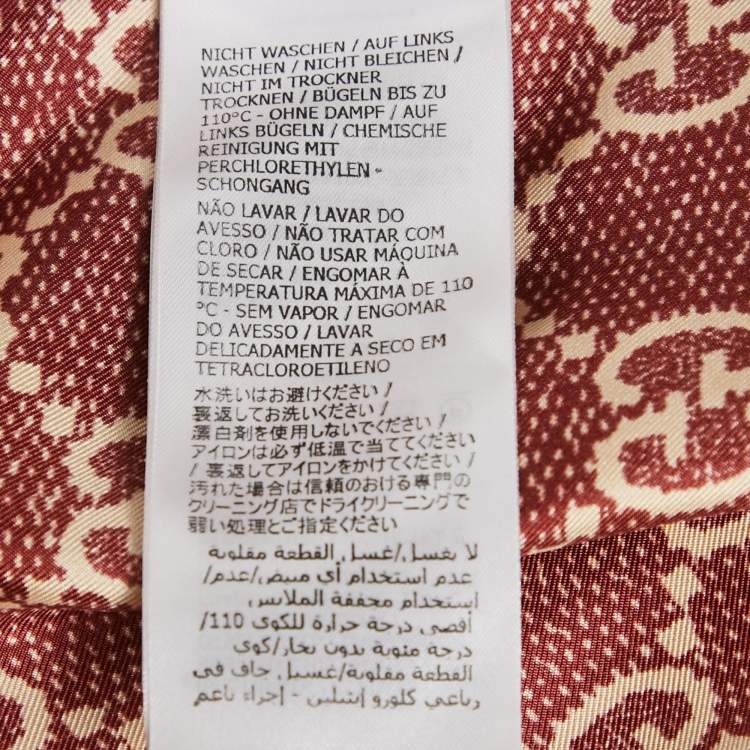 NICHT WASCHEN / AUF LINKS
WASCHEN / NICHT BLEICHEN /
NICHT IM TROCKNER
TROCKNEN / BÜGELN BIS ZU
110°C - OHNE DAMPF / AUF
LINKS BÜGELN / CHEMISCHE
REINIGUNG MIT
PERCHLORETHYLEN -
SCHONGANG
NÃO LAVAR / LAVAR DO
AVESSO / NÃO TRATAR COM
CLORO / NÃO USAR MÁQUINA
DE SECAR / ENGOMAR À
TEMPERATURA MÁXIMA DE 110
°C - SEM VAPOR / ENGOMAR
DO AVESSO / LAVAR
DELICADAMENTE A SECO EM
TETRACLOROETILENO
水洗いはお避けください /
裏返してお洗いください /
漂白剤を使用しないでください /
アイロンは必ず低温で当ててください
/ 裏返してアイロンをかけてください /
汚れた場合は信頼のおける専門の
クリーニング店でドライクリーニングで
弱い処理とご指定ください
لا يغسل/غسل القطعة مقلوبة
/عدم استخدام أي مبيض/عدم
استخدام مجففة الملابس
/أقصى درجة حرارة للكوى 110
درجة مئوية بدون بخار/كوى
القطعة مقلوبة/غسيل جاف في
رباعي كلورو إيثيلين - إجراء ناعم